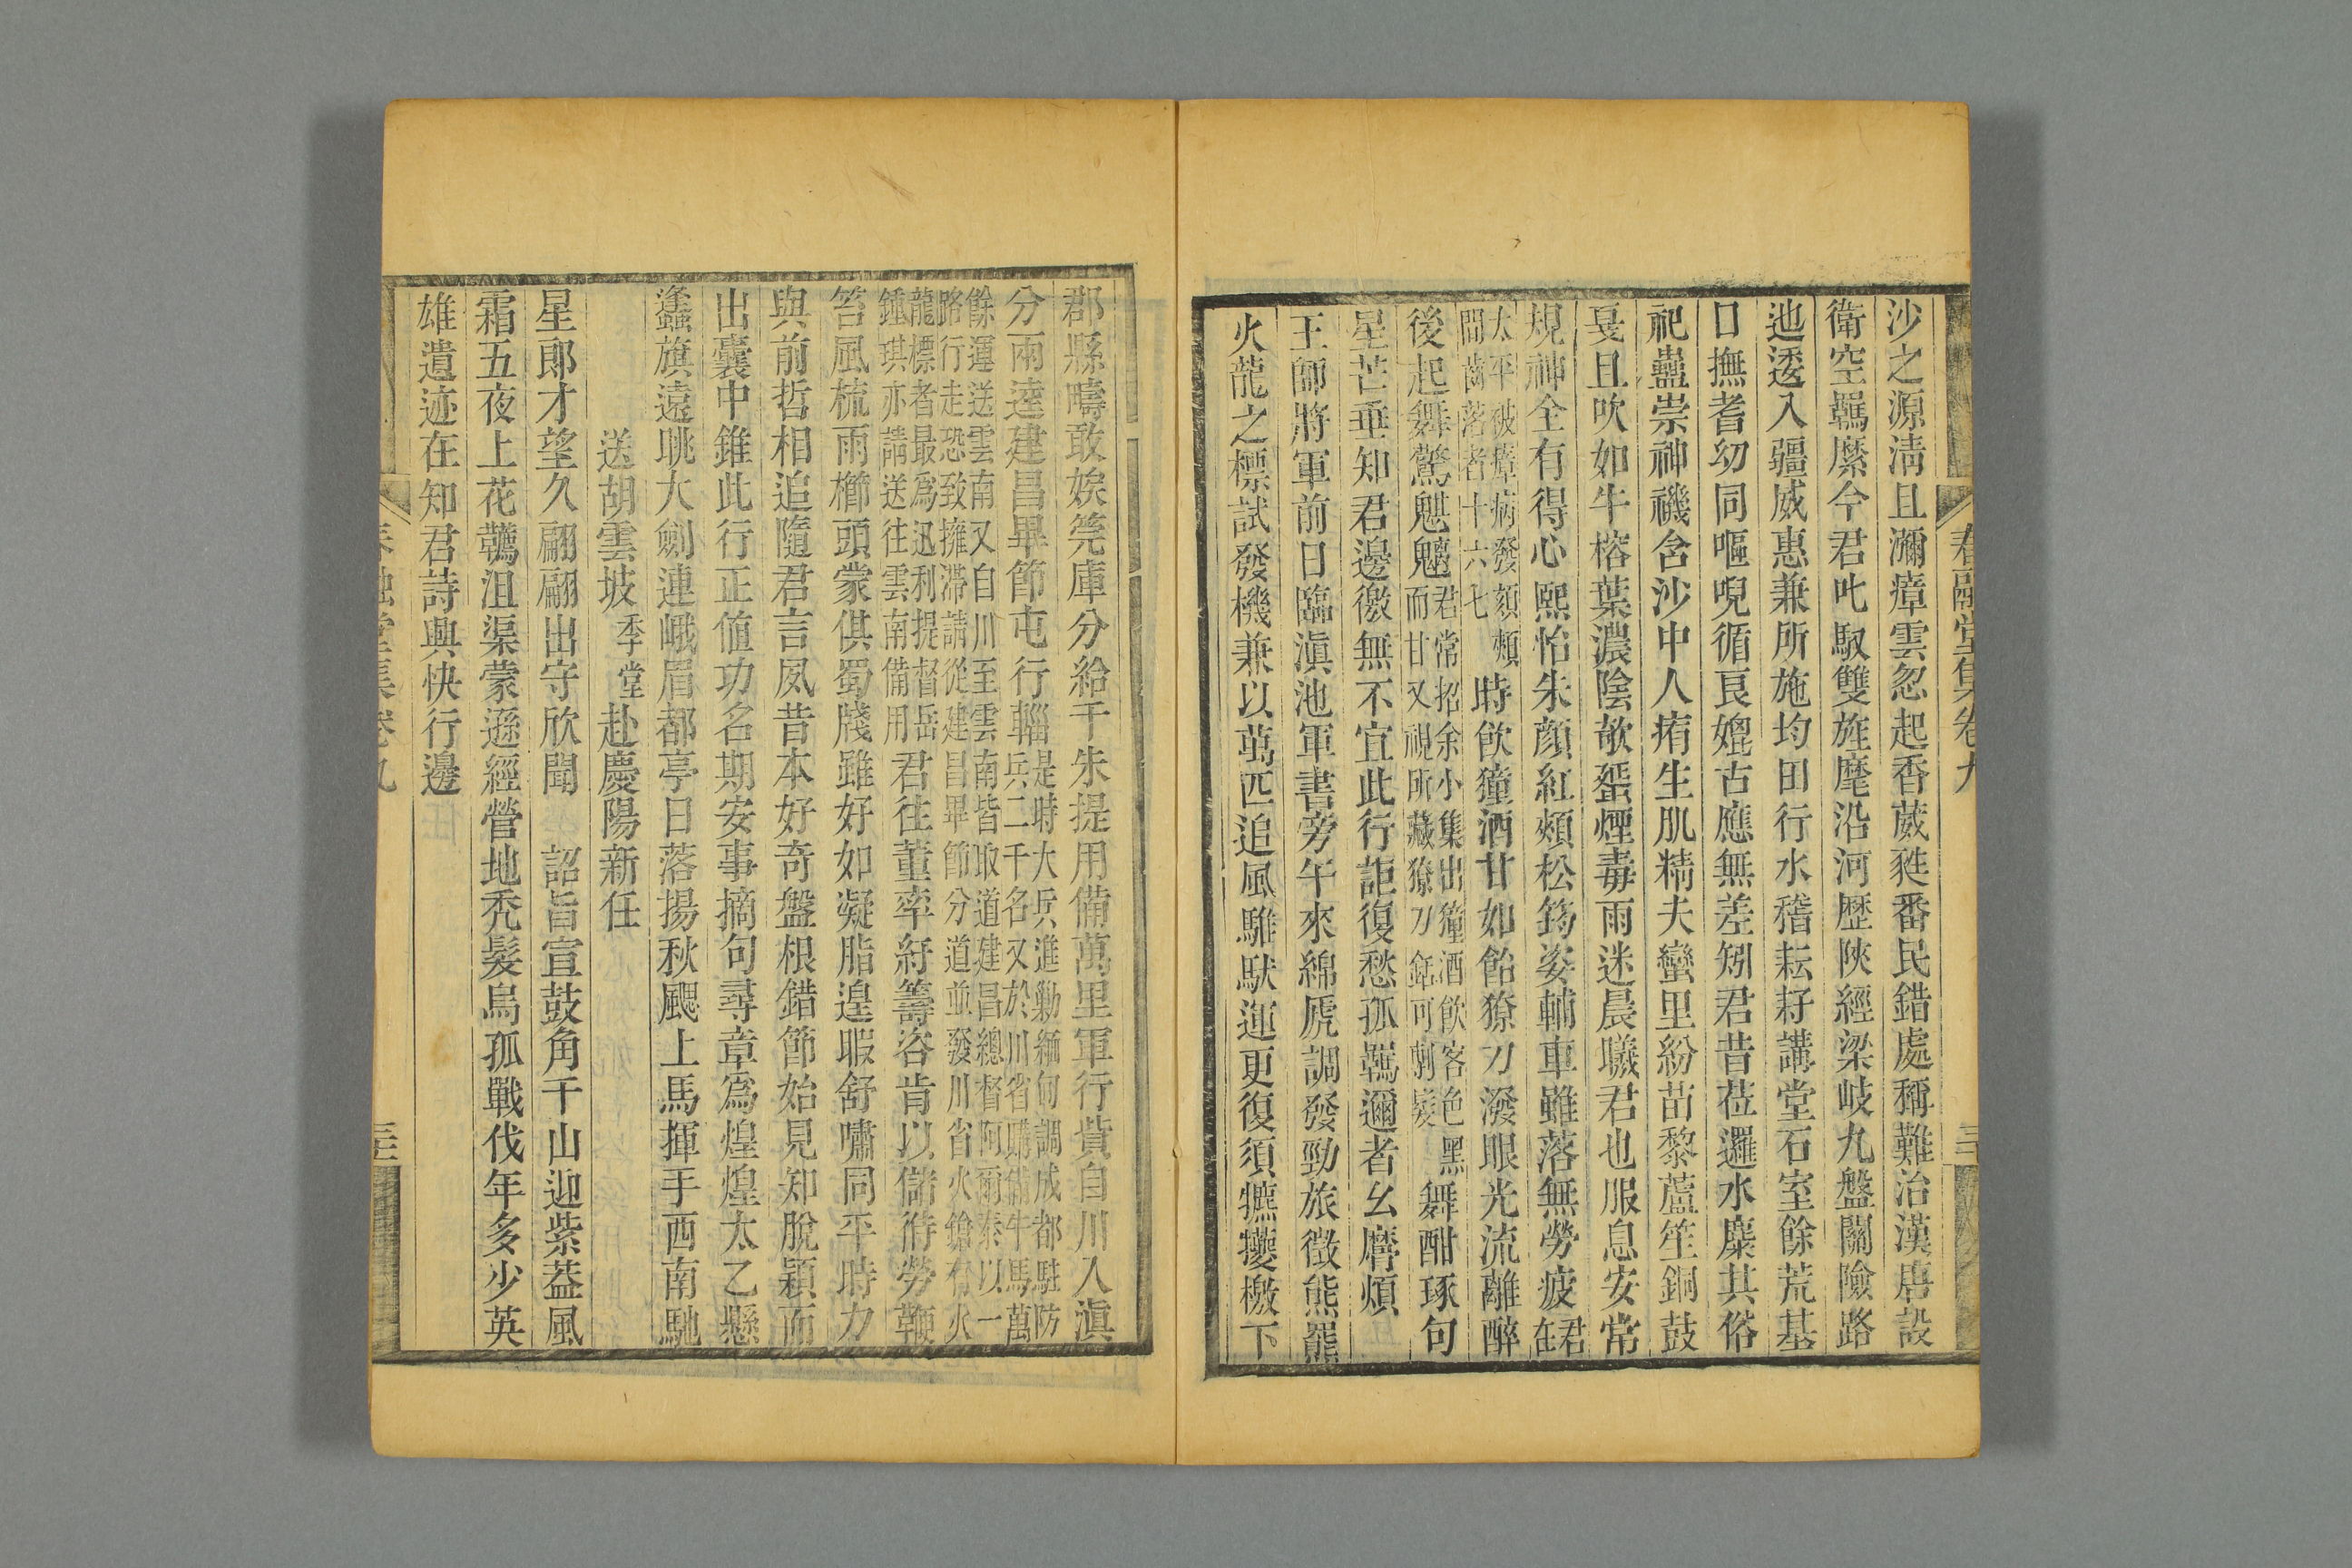 春融堂集卷九
沙之源淸且瀰瘴雲忽起香葳甤番民錯處稱難治漢唐設
衛空羈縻今君叱馭雙旌麾沿河歷陝經梁岐九盤關險路
迆逶入疆威惠兼所施均田行水稽耘耔講堂石室餘荒基
口撫耆幼同嘔唲循良媲古應無差矧君昔莅邏水麋其俗
祀蠱崇神禨含沙中人痏生肌精夫蠻里紛苗黎蘆笙銅鼓
旻且吹如牛榕葉濃陰欹蜑煙毒雨迷晨曦君也服息安常
規神全有得心熙怡朱顏紅頰松筠姿輔車雖落無勞疲君在
太平被瘴病發頦頰
間齒落者十六七
時飲獞酒甘如飴獠刀潑眼光流離醉
後起舞驚魌魖
君常招余小集出獞酒飲客色黑
而甘又視所藏獠刀銛可剸髮
舞酣琢句
星芒垂知君邊徼無不宜此行詎復愁孤羈邇者幺麿煩
王師將軍前日臨滇池軍書旁午來綿虒調發勁旅徵熊羆
火龍之標試發機兼以萬匹追風騅馱運更復須犥㹛檄下
郡縣疇敢娭筦庫分給千朱提用備萬里軍行貲自川入滇
分兩逵建昌畢節屯行輜
是時大兵進勦緬甸調成都駐防
兵二千名又於川省購備牛馬萬
餘運送雲南又自川至雲南皆取道建昌總督阿爾泰以一
路行走恐致擁滯請從建昌畢節分道並發川省火鎗有火
龍標者最爲迅利提督岳
鍾琪亦請送往雲南備用
君往董率紆籌咨肯以儲偫勞鞭
笞風梳雨櫛頭蒙倛蜀牋雖好如凝脂遑暇舒嘯同平時力
與前哲相追隨君言夙昔本好奇盤根錯節始見知脫穎而
出囊中錐此行正値功名期安事摘句尋章爲煌煌太乙懸
逢蠭旗遠眺大劒連峨眉都亭日落揚秋颸上馬揮手西南馳
送胡雲坡季堂赴慶陽新任
星郎才望久翩翩出守欣聞　詔旨宣鼓角千山迎紫葢風
霜五夜上花韉沮渠蒙遜經營地禿髮烏孤戰伐年多少英
雄遺迹在知君詩興快行邊